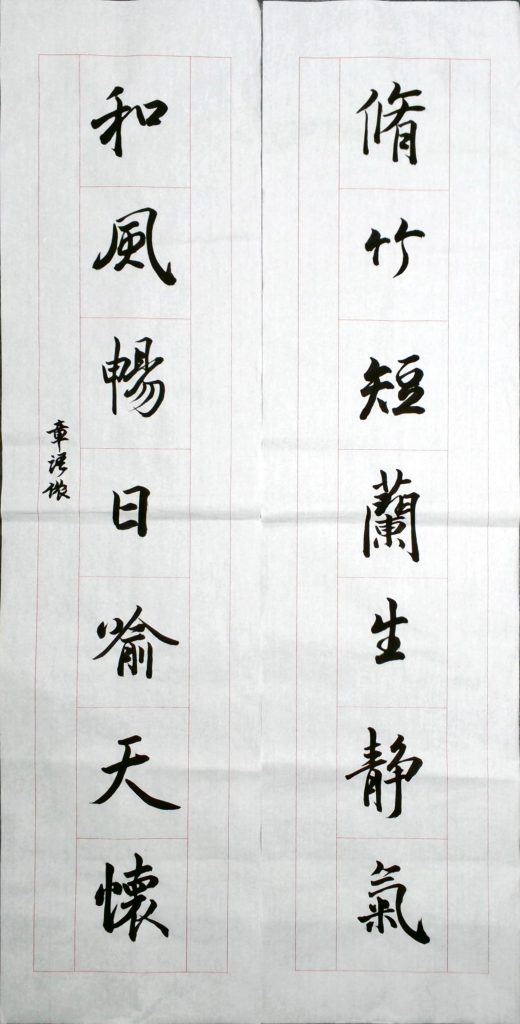 脩竹短蘭生静氣
和風暢日喻天懷
章语